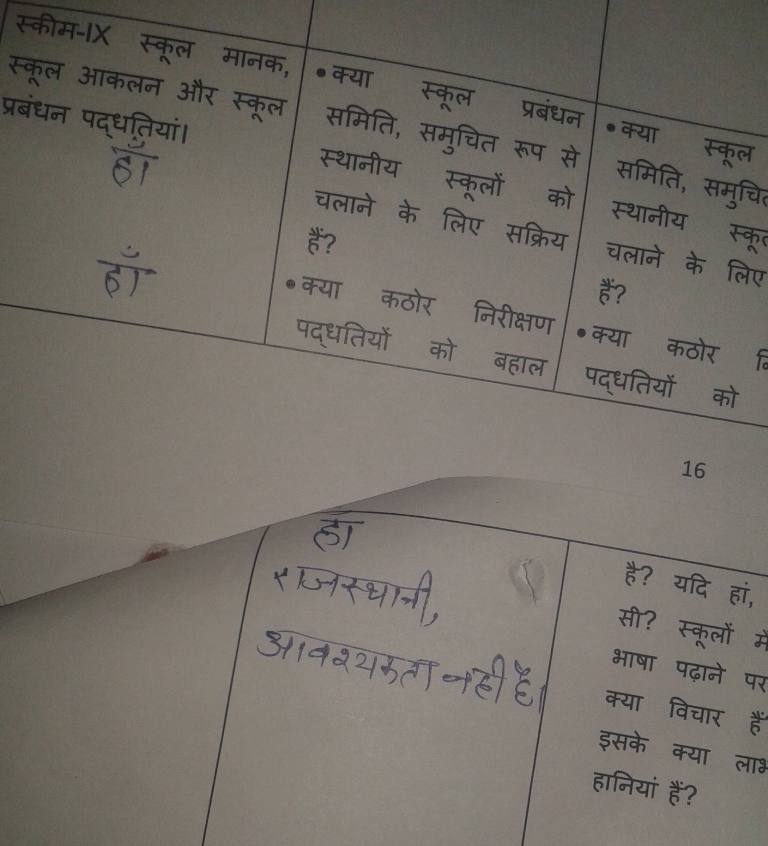 स्कीम-IX स्कूल मानक,
स्कूल आकलन और स्कूल
प्रबंधन पद्धतियां।
हाँ
हाँ
•क्या स्कूल प्रबंधन
समिति, समुचित रूप से
स्थानीय स्कूलों को
चलाने के लिए सक्रिय
हैं?
•क्या कठोर निरीक्षण
पद्धतियों को बहाल
•क्या स्कूल
समिति, समुचित
स्थानीय
चलाने के लिए
हैं?
•क्या कठोर
पद्धतियों को
16
हाँ
राजस्थानी,
आवश्यकता नही है।
है? यदि हां,
सी? स्कूलों में
भाषा पढ़ाने पर
क्या विचार हैं
इसके क्या लाभ
हानियां हैं?